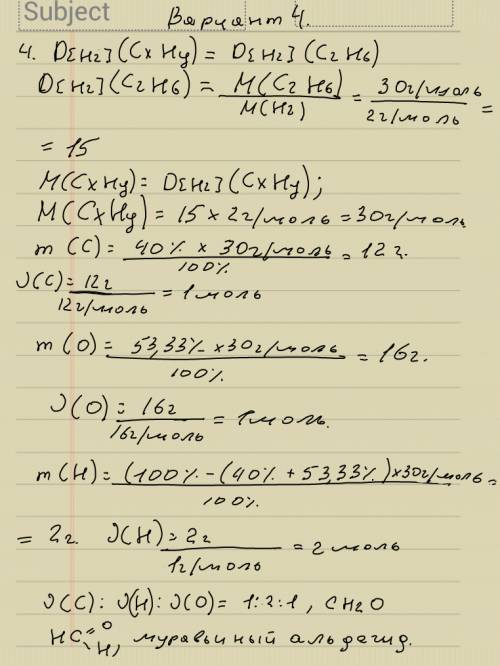 Subject
Вариант 4.
4. D[H2](CxHy) = D[H2](C2H6)
D[H2](C2H6) = M(C2H6) / M(H2) = 30г/моль / 2г/моль =
= 15
M(CxHy) = D[H2](CxHy);
M(CxHy) = 15 × 2г/моль = 30г/моль
m(C) = 40% × 30г/моль / 100% = 12г.
ν(C) = 12г / 12г/моль = 1моль
m(O) = 53,33% × 30г/моль / 100% = 16г.
ν(O) = 16г / 16г/моль = 1моль.
m(H) = (100% - (40% + 53,33%) × 30г/моль / 100% =
= 2г. ν(H) = 2г / 1г/моль = 2моль
ν(C) : ν(H) : ν(O) = 1:2:1, CH2O
HC=O H, муравьиный альдегид.